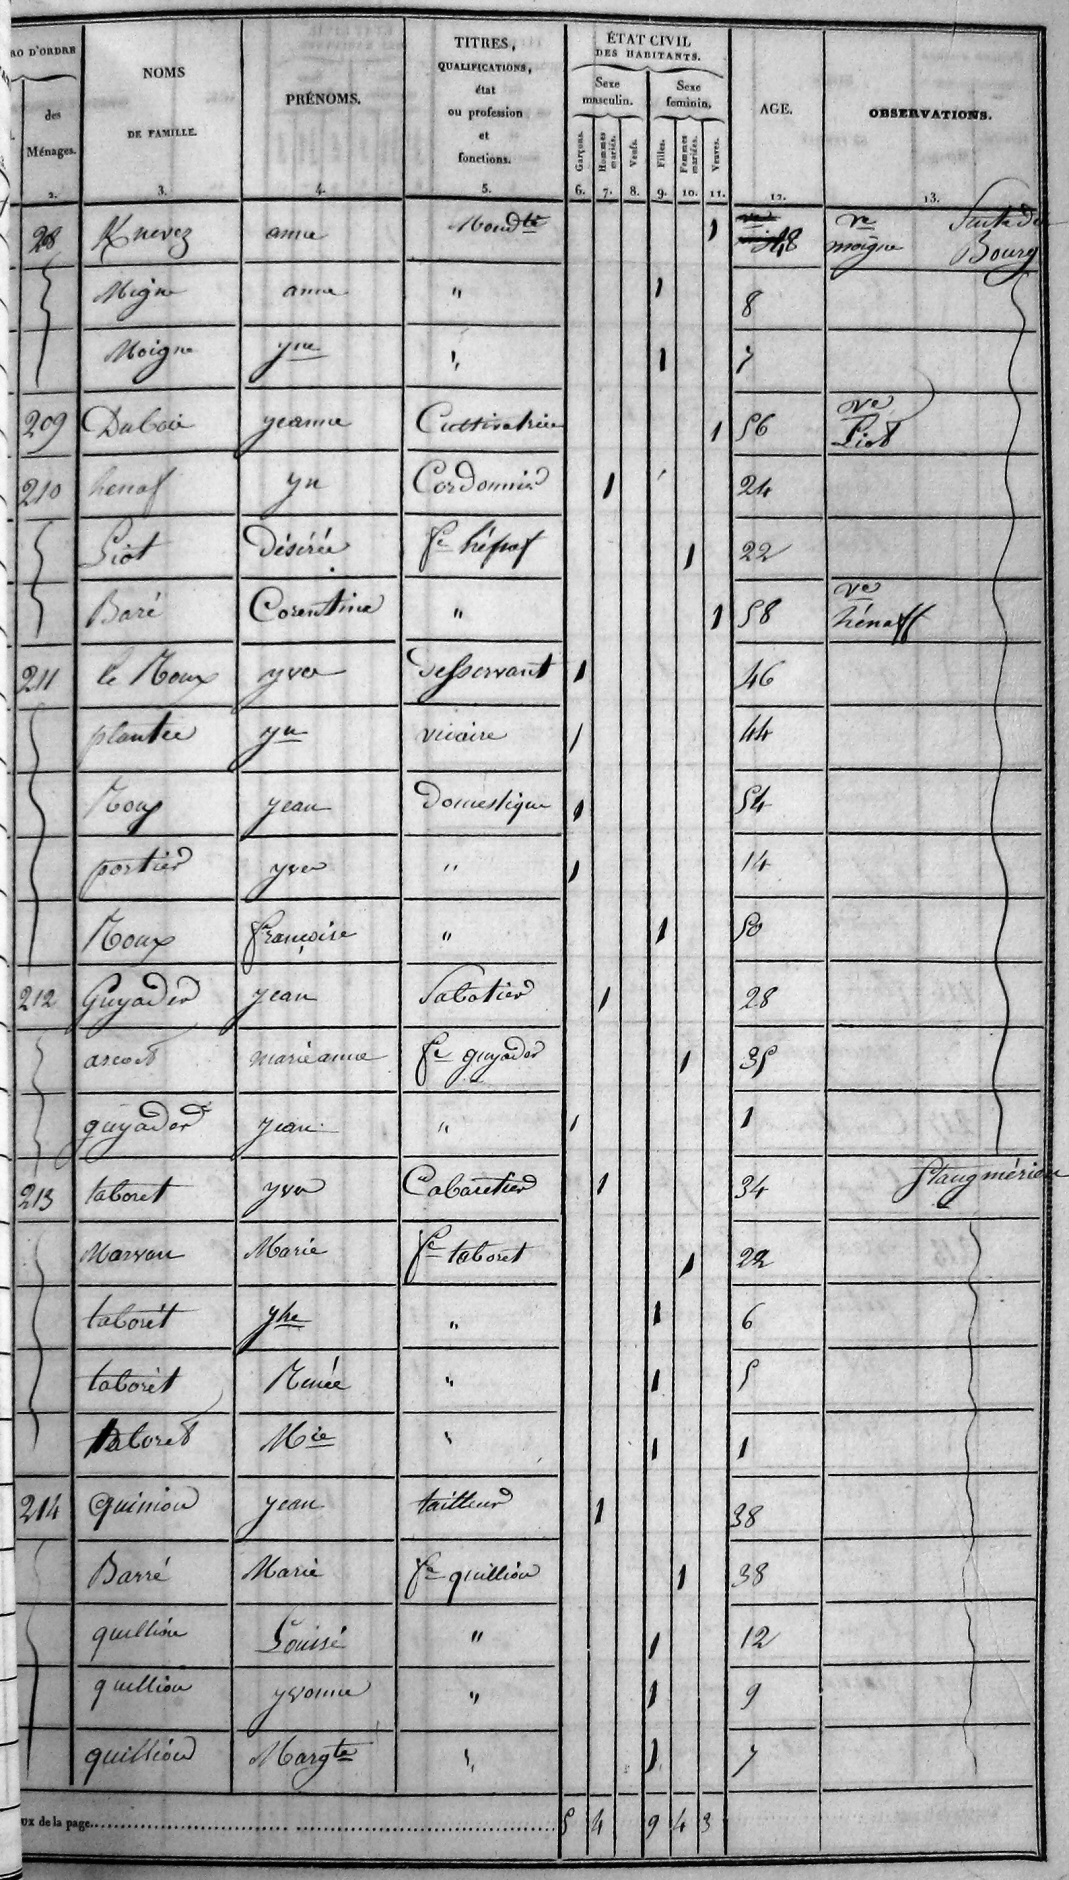 RO D'ORDRE
des
Ménages.
NOMS
DE FAMILLE.
PRÉNOMS.
TITRES,
QUALIFICATIONS,
état
ou profession
et
fonctions.
ÉTAT CIVIL
DES HABITANTS.
Sexe
masculin.
Sexe
feminin.
Garçons.
Hommes
mariés.
Veufs.
Filles.
Femmes
mariées.
Veuves.
AGE.
OBSERVATIONS.
2. 3. 4. 5. 6. 7. 8. 9. 10. 11. 12. 13.
208 Knevez anne Mendte 1 48 ve moigne Suite du Bourg
Migne anne " 1 8
Moigne yne " 1 7
209 Dubois yeanne Cultivatrice 1 56 ve Liot
210 henaf yn Cordonnier 1 24
Liot Désirée fe hénaf 1 22
Baré Corentine " 1 58 ve hénaff
211 le Roux yves desservant 1 46
plantec yn vicaire 1 44
Roux yean Domestique 1 54
portier yves " 1 14
Roux françoise " 1 50
212 Guyader yean Sabotier 1 28
ascoet marie anne fe guyader 1 35
guyader yean " 1 1
213 taboret yves Cabaretier 1 34 Stangmérien
Marvan Marie fe taboret 1 22
taborét yhe " 1 6
taborét Renée " 1 5
taboret Mie " 1 1
214 Quiniou yean tailleur 1 38
Barré Marie fe quilliou 1 38
quilliou Louise " 1 12
quilliou yvonne " 1 9
quilliou Margte " 1 7
ux de la page 5 4 9 4 3